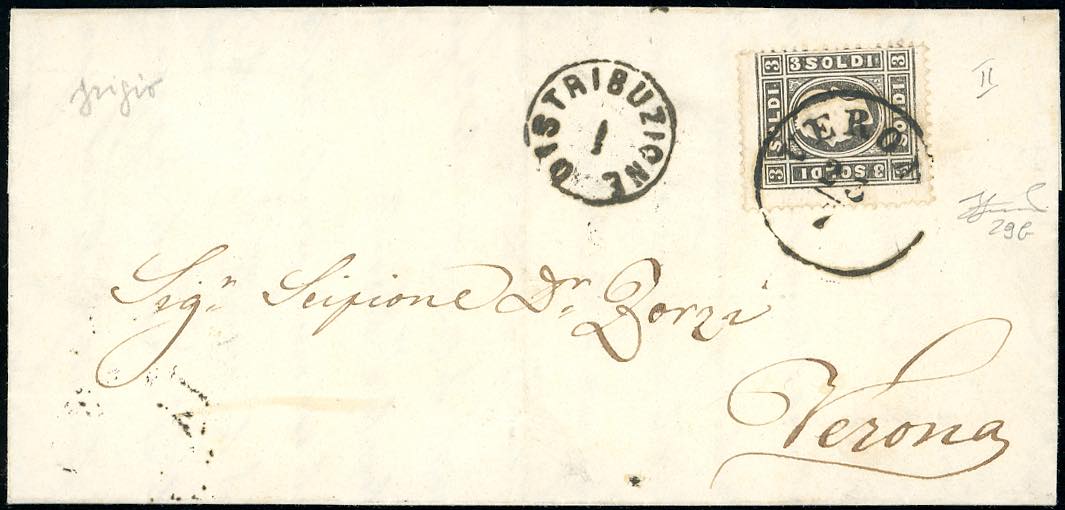 grigio
DISTRIBUZIONE
1
3 3 SOLDI 3
SOLDI
SOLDI
3 3 SOLDI 3
VERONA
II
29b
Sig.r Scipione Dr. Zorzi
Verona